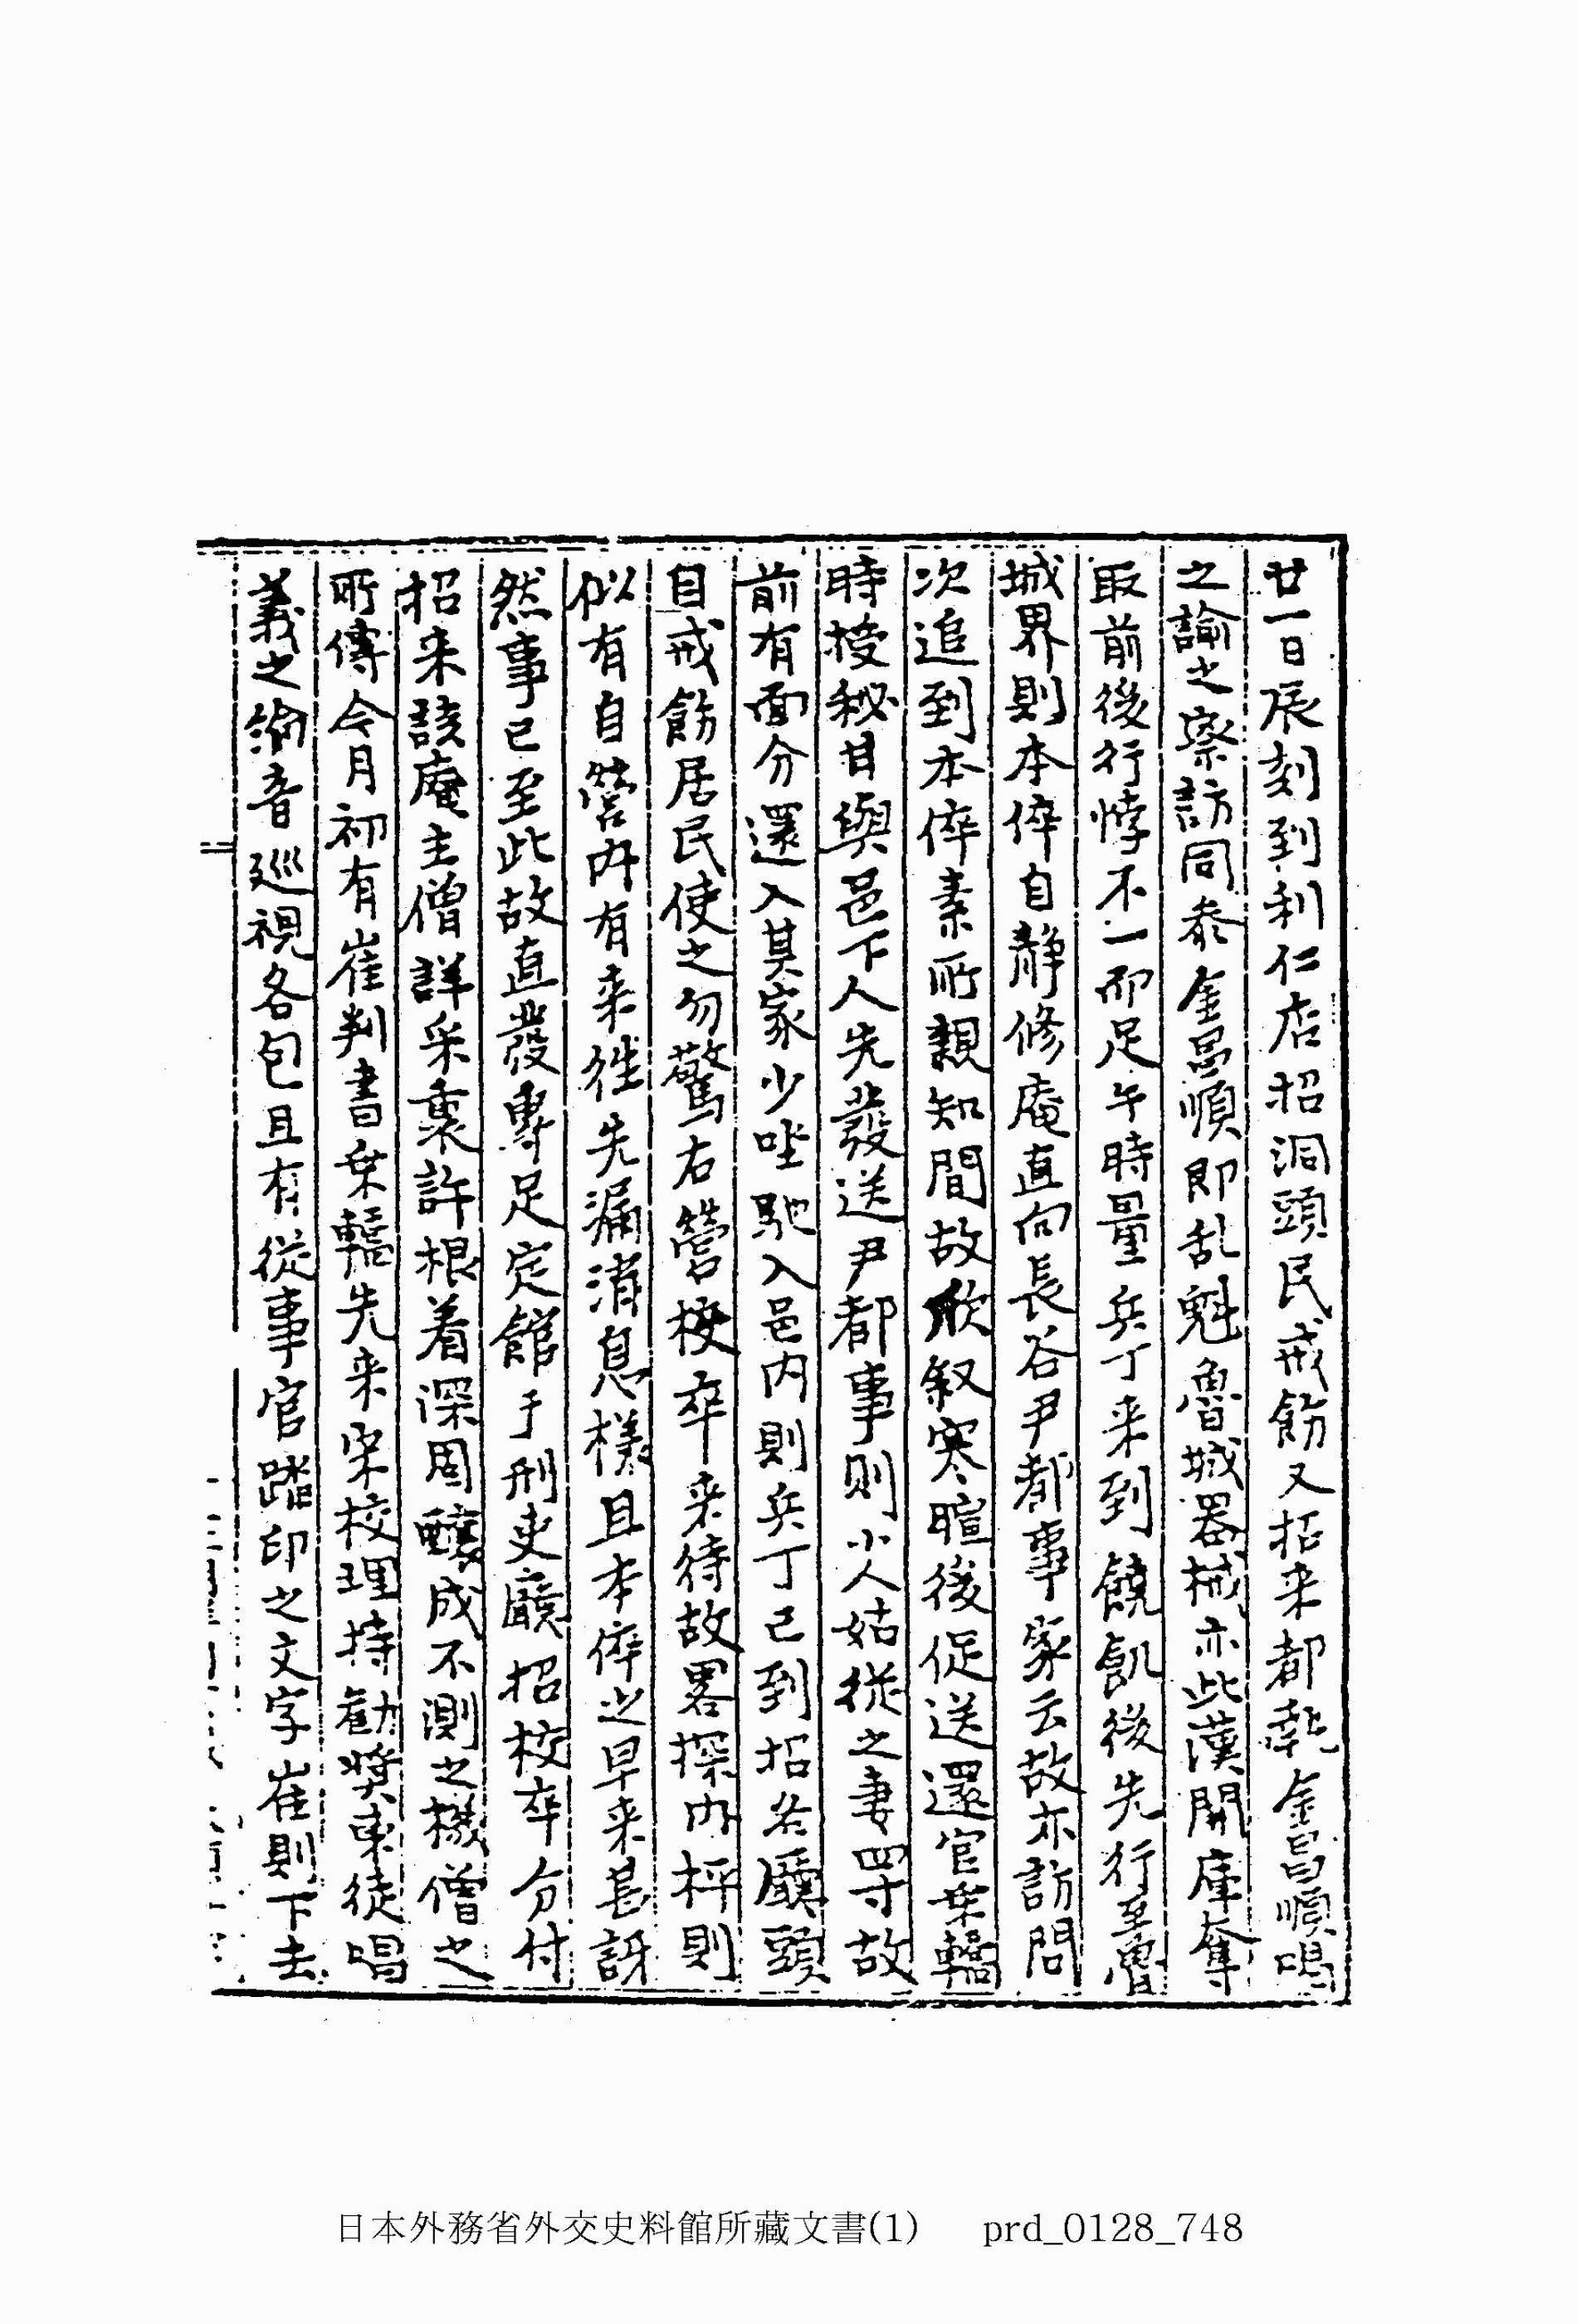 廿一日辰刻到利仁店招洞頭民戒飭又招来都執金昌順喝
之諭之察訪同泰金昌順即乱魁魯城器械亦此漢開庫奪
取前後行悖不一而足午時量兵丁来到饒飢後先行至魯
城界則本倅自静修庵直向長谷尹都事家云故亦訪問
次追到本倅素所親知間故欣叙寒暄後促送還官乗轎
時授秘甘與邑下人先發送尹都事則小人姑從之妻四寸故
前有面分還入其家少坐馳入邑内則兵丁已到招各廳頭
目戒飭居民使之勿驚右營校卒来待故畧探内枰則
似有自營内有来徃先漏消息様且本倅之早来甚訝
然事已至此故直發專足定館于刑吏廳招校卒分付
招来該庵主僧詳采裏許根着深固釀成不測之機僧之
所傳今月初有崔判書乗轎先来宋校理持勸奬東徒唱
義之綸音巡視各包且有從事官踏印之文字崔則下去
二
日本外務省外交史料館所藏文書(1) prd_0128_748